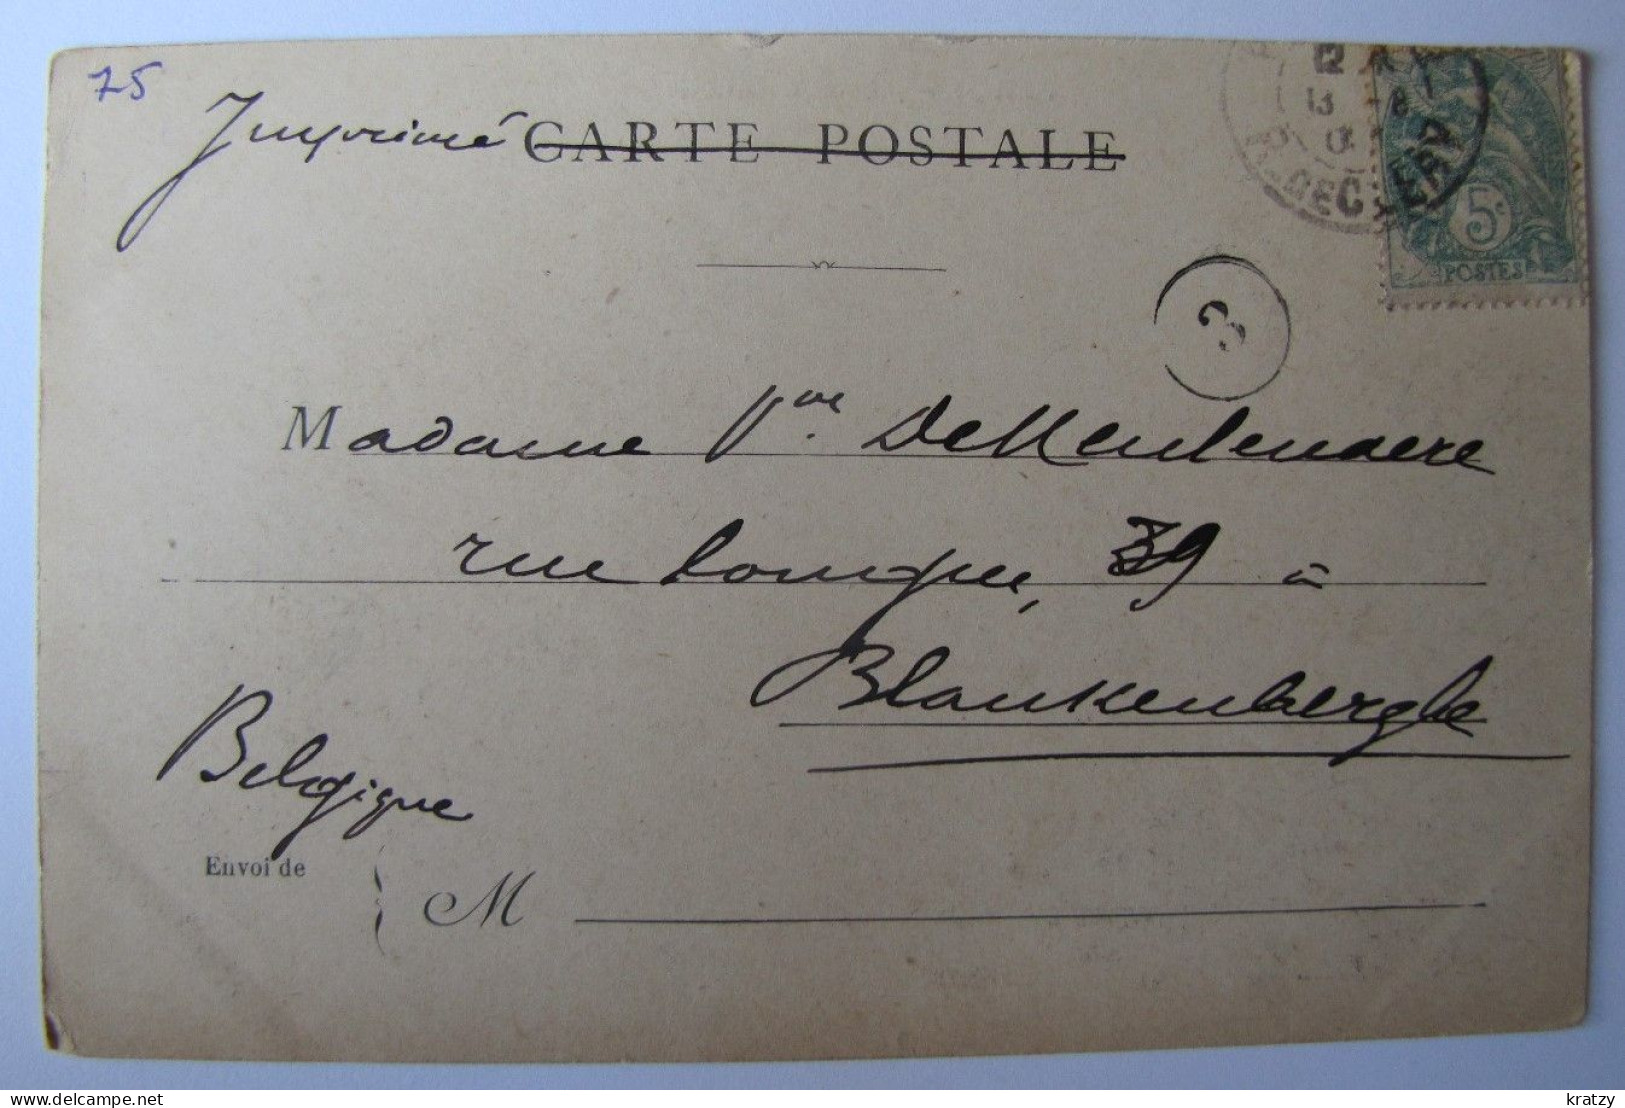 75
Imprimé CARTE POSTALE
12
13 -8
DECAEN
5c
POSTES
3
Madame Vve DeMeulenaere
rue Longue, 39 à
Blankenberghe
Belgique
Envoi de
M
kratzy